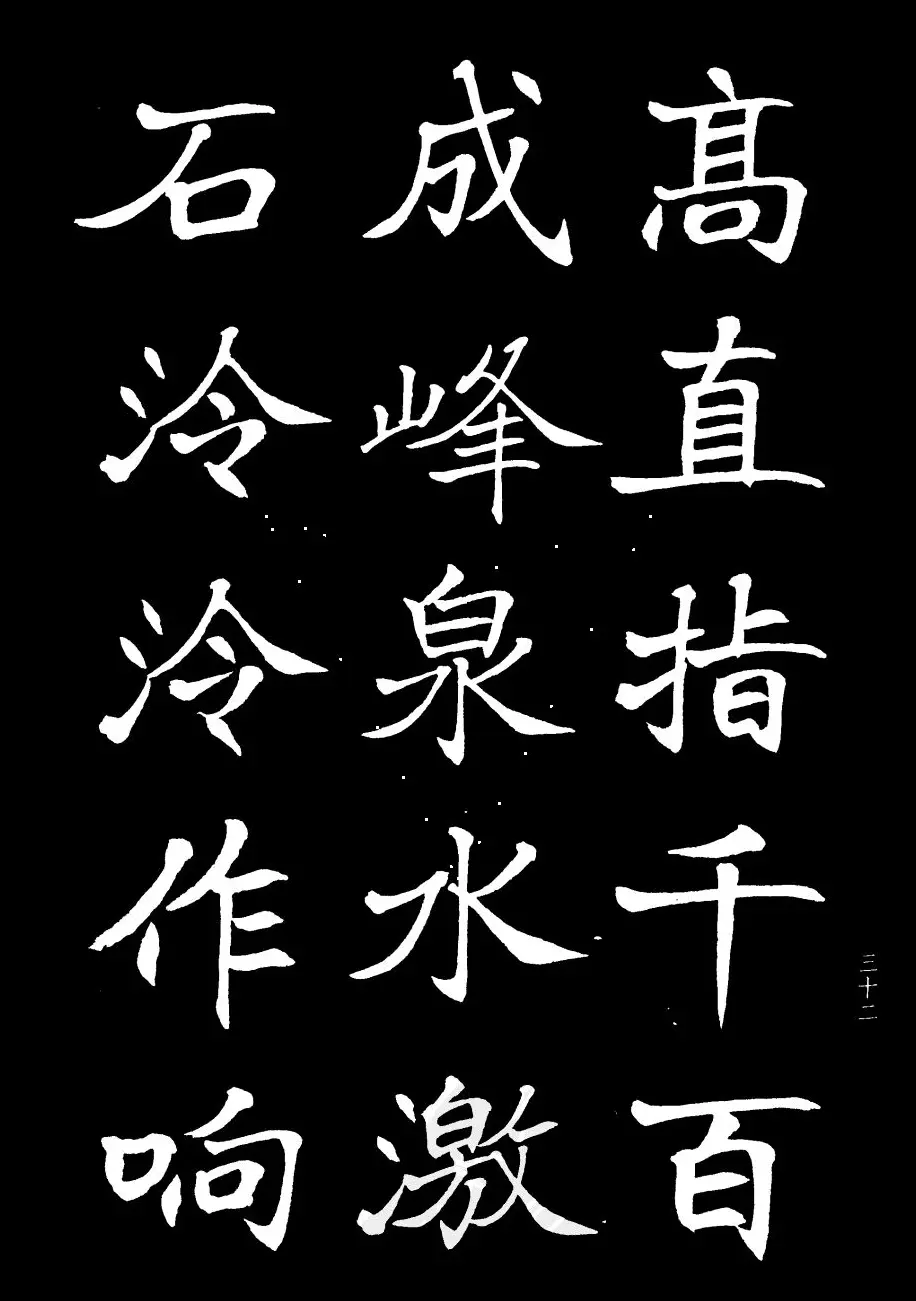 髙直指千百
成峰泉水激
石泠泠作响
三十二